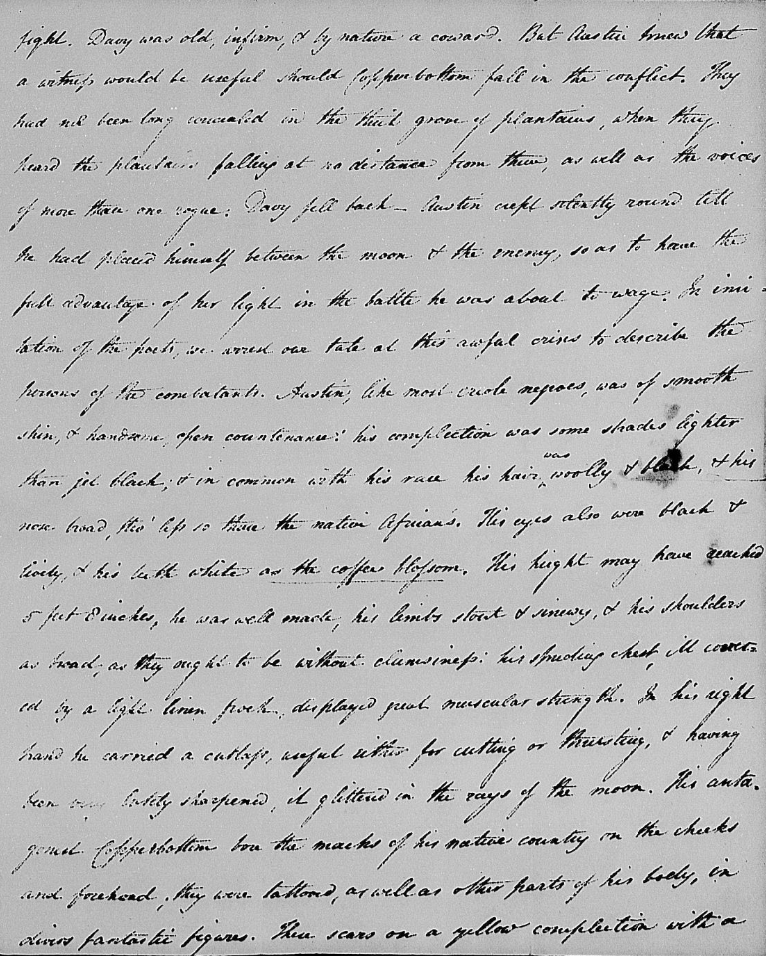 fight. Davy was old, infirm, & by nature a coward. But Austin knew that
a witness would be useful should Copperbottom fall in the conflict. They
had not been long concealed in the thick grove of plantains, when they
heard the plantains falling at no distance from them, as well as the voices
of more than one rogue: Davy fell back — Austin crept silently round till
he had placed himself between the moon & the enemy, so as to have the
full advantage of her light in the battle he was about to wage. In imi-
tation of the poets, we arrest our tale at this awful crisis to describe the
persons of the combatants. Austin, like most creole negroes, was of smooth
skin, & handsome, open countenance: his complection was some shades lighter
than jet black; & in common with his race his hair was woolly & black, & his
nose broad, tho' less so than the native African's. His eyes also were black &
lively, & his teeth white as the coffee blossom. His height may have reached
5 feet 8 inches, he was well made, his limbs stout & sinewy, & his shoulders
as broad, as they ought to be without clumsiness: his spreading chest, ill cover-
ed by a light linen frock, displayed great muscular strength. In his right
hand he carried a cutlass, useful either for cutting or thrusting, & having
been very lately sharpened, it glittered in the rays of the moon. His anta-
gonist Copperbottom bore the marks of his native country on the cheeks
and forehead, they were tattooed, as well as other parts of his body, in
divers fantastic figures. These scars on a yellow complection with a